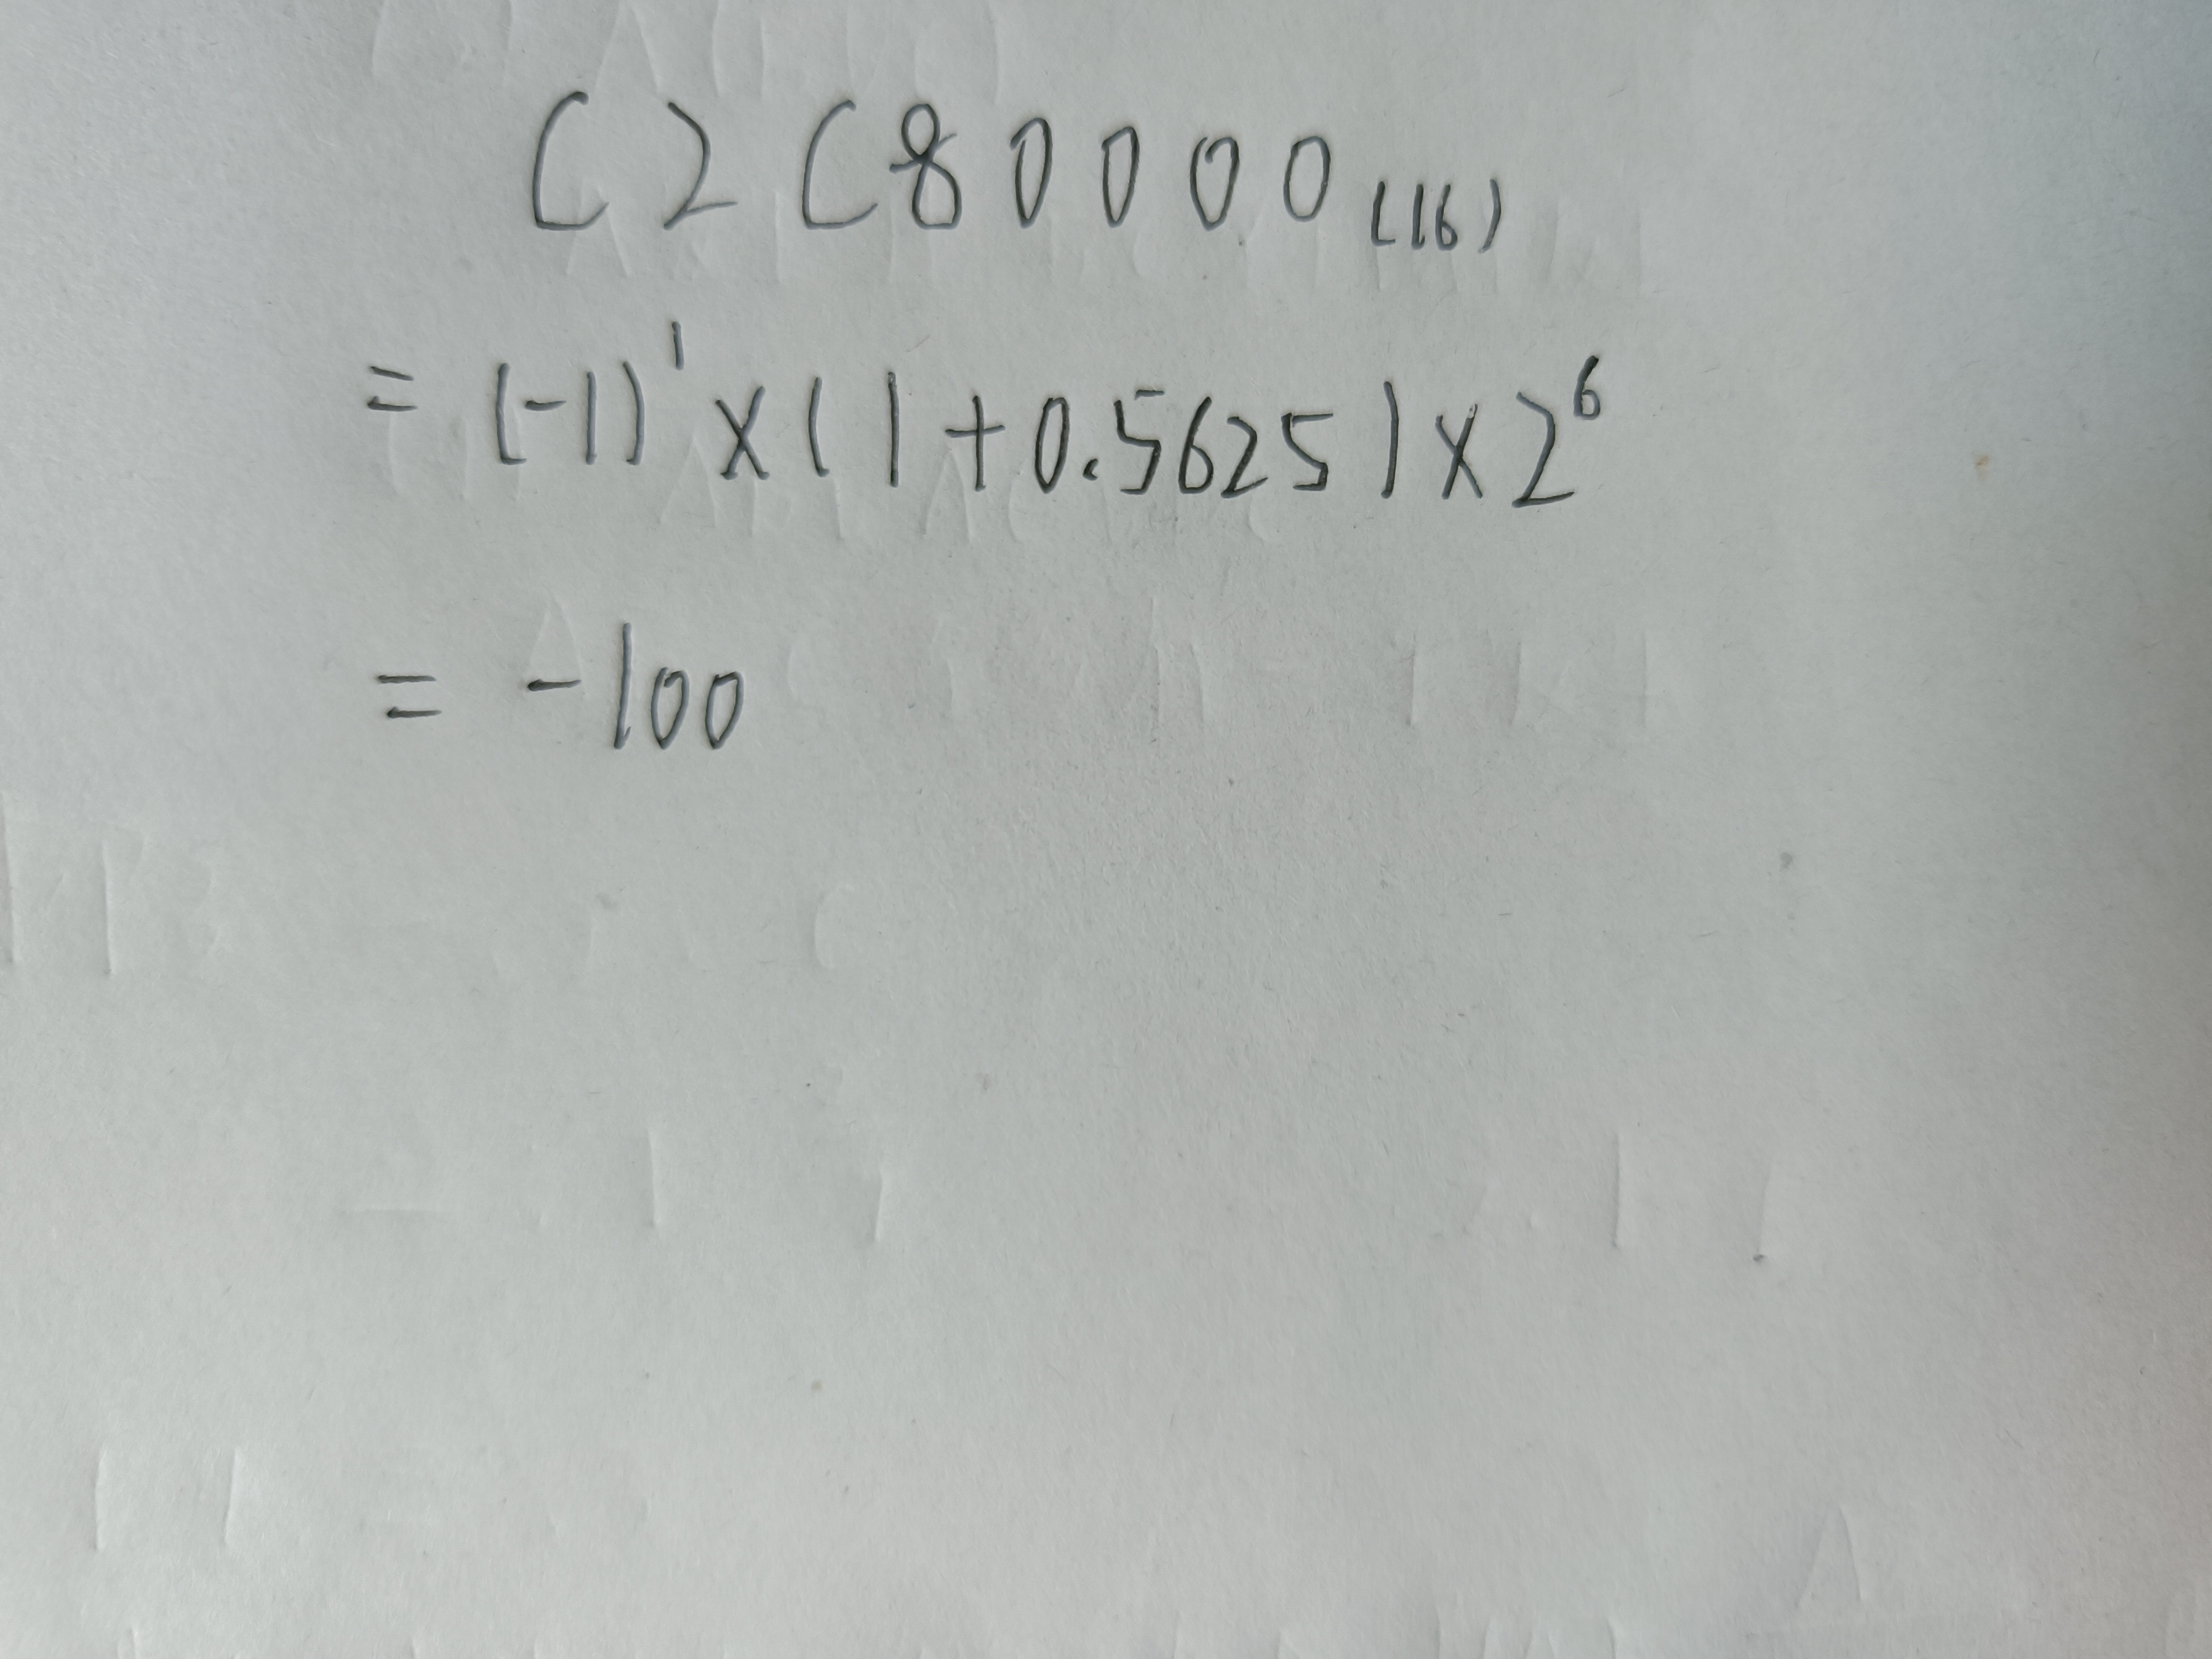 C2C80000(16)
= (-1)¹ × (1 + 0.5625) × 2⁶
= -100